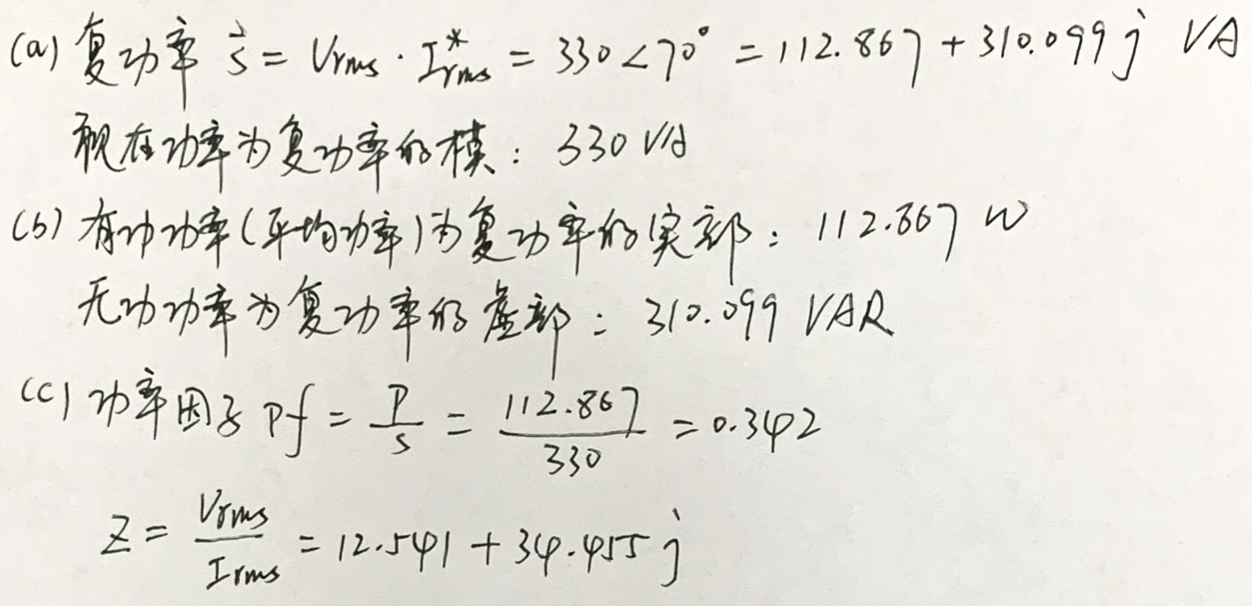 (a) 复功率 S⃗ = Vrms · I*rms = 330∠70° = 112.867 + 310.099 j VA
视在功率为复功率的模: 330 VA
(b) 有功功率(平均功率)为复功率的实部: 112.867 W
无功功率为复功率的虚部: 310.099 VAR
(c) 功率因子 Pf = P/S = 112.867/330 = 0.342
Z = Vrms/Irms = 12.541 + 34.455 j